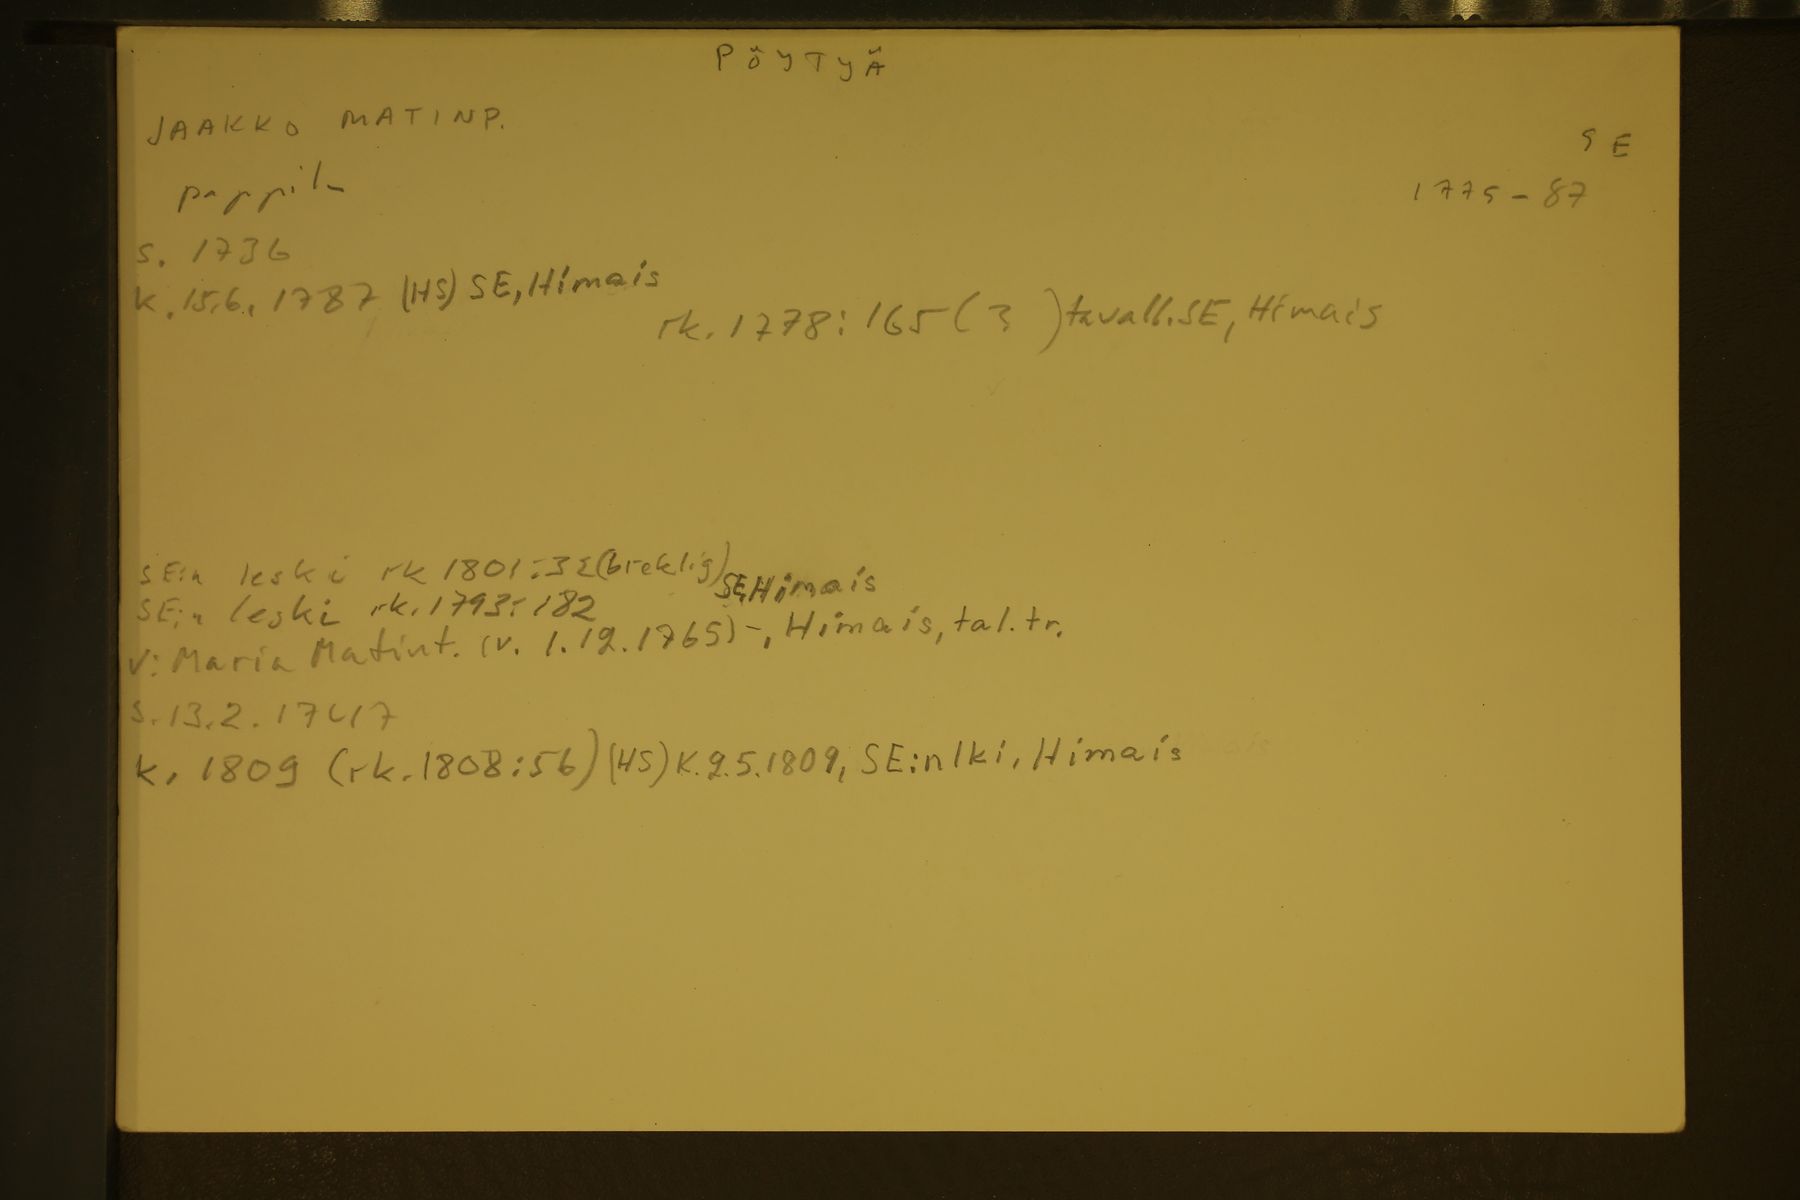 PÖYTYÄ
JAAKKO MATINP.
SE
pappila
1775-87
s. 1736
k. 15.6. 1787 (HS) SE, Himais
rk. 1778: 165 (3 ) tavall. SE, Himais
SE:n leski rk 1801:32 (breklig) SE, Himais
SE:n leski rk. 1793: 182
v: Maria Matint. (v. 1.12.1765) -, Himais, tal. tr.
s. 13.2. 1747
k. 1809 (rk. 1808:56) (HS) K. 9.5.1809, SE:n lki, Himais